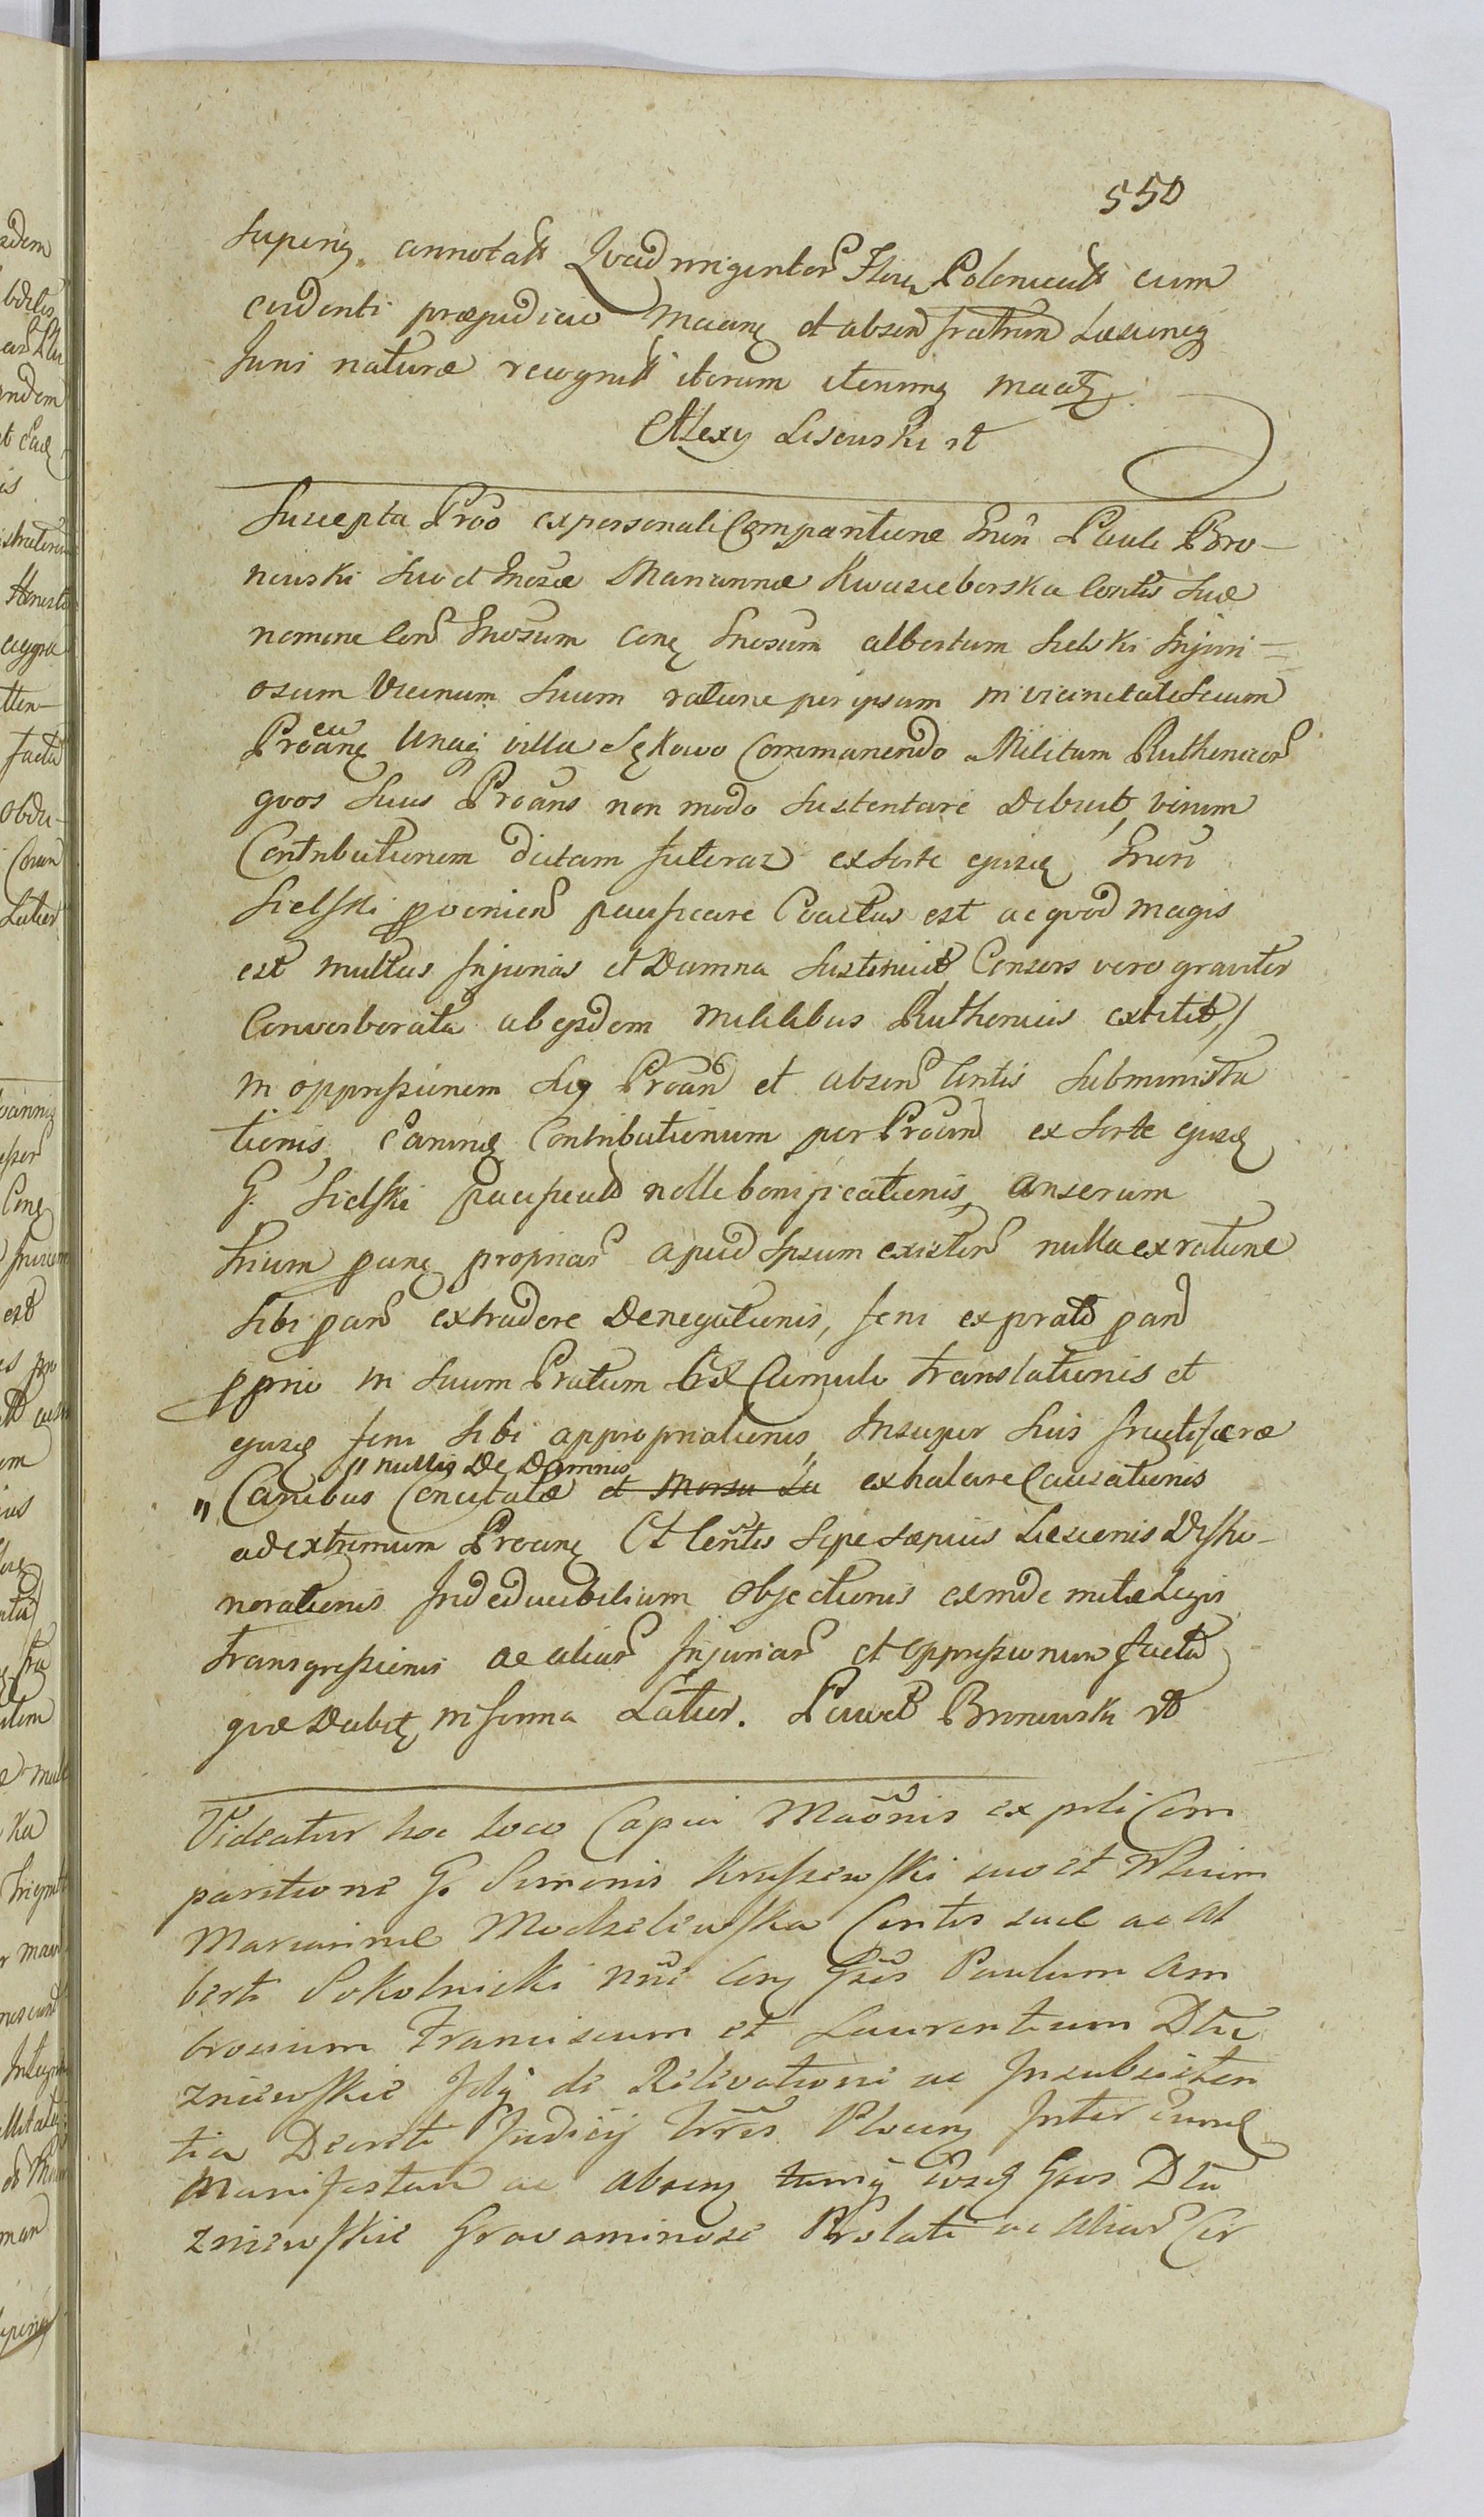 550
superiq annotatt Quadringentor Flor Polonicatt cum
evidenti præjudicio Mcianq et absen fratrum Læsioneq
suni naturæ recognitt iterum iterumq Mcatq.
Alexy Lisewski rt
Suscepta Prõõ ex personali Comparitione Gnõri Pauli Bro-
niewski suo et Gnosæ Mariannæ Kwasieborska Contis suæ
nomine Cons Gnosum Conq Gnosum Albertum Sielski Injuri=
osum Vicinum suum ratione per ipsum in vicinitate secum
eu
Proanq Unaq villa Sękowo Commanendo Militum Ruthenicor
quos suus Proans non modo sustentare debuit, virum
Contributionem dictam futeraz ex sorte ejusq Gnosi
Sielski pacificare Coactus est ac quod magis
est multas Injurias et Damna sustinuit, Consors vero graviter
Converberata ab ejsdem Militibus Ruthenicis extitit,/
in oppressionem sui Proan et absen Contis subministra
tionis, Earumq Contributionum per Proan ex sorte ejusq
G. Sielski pacificat nolle bonificationis, Anserum
trium panq propriar apud Ipsum existen nulla ex ratione
sibi pan extradere Denegationis, feni ex prato pan
pprio in suum Pratum Cumulo translationis et
ejusq feni sibi appropriationis, Insuper suis fructiferæ
" nulliq De Damnis
" Canibus Concitatæ et Morsu La" exhalare Causationis
ad extremum Proanq Et Contis sæpe sæpius Læsionis Disho-
norationis Indeducibilium Objectionis exinde mitæ Legis
transgressionis ac aliar Injuriar et oppressionum facta
quæ Dabit, in forma Latior. Paweł Broniewski rt
Videatur hoc loco Copia Maõnis ex prli Com
paritione G. Simonis Kruszewski suo et
Mariannæ Modzelewska Contis suæ ac Al
berti Sokolnicki nñe Conq Gsos Paulum Am
brosium Franciscum et Laurentium Dłu
zniewskie Idq de Relevatione ac Insubsisten
tia Decreti Judicij Trris Plocens Inter eumq
Manifestan ac absenq tumq eosq Gsos Dłu
zniewskie Gravaminose Prolati ac aliar Cir